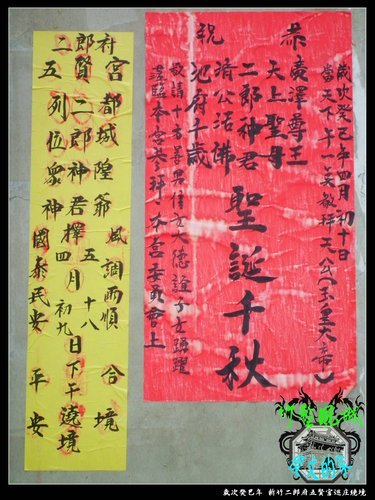 歲次癸巳年四月初十日
當天下午一矣敬拜天公(玉皇大帝)
恭
祝
廣澤尊王
天上聖母
二郎神君
濟公活佛
池府千歲
聖誕千秋
敬請十方善男信女大德誼子女踴躍
蒞臨本宮參拜 本宮委員會上
二郎府
五賢宮
列二都
位郎城
眾神隍
神君爺
擇
四五月
初九 十八
日下午遶境
風調雨順 合境
國泰民安 平安
歲次癸巳年 新竹二郎府五賢宮遶庄繞境